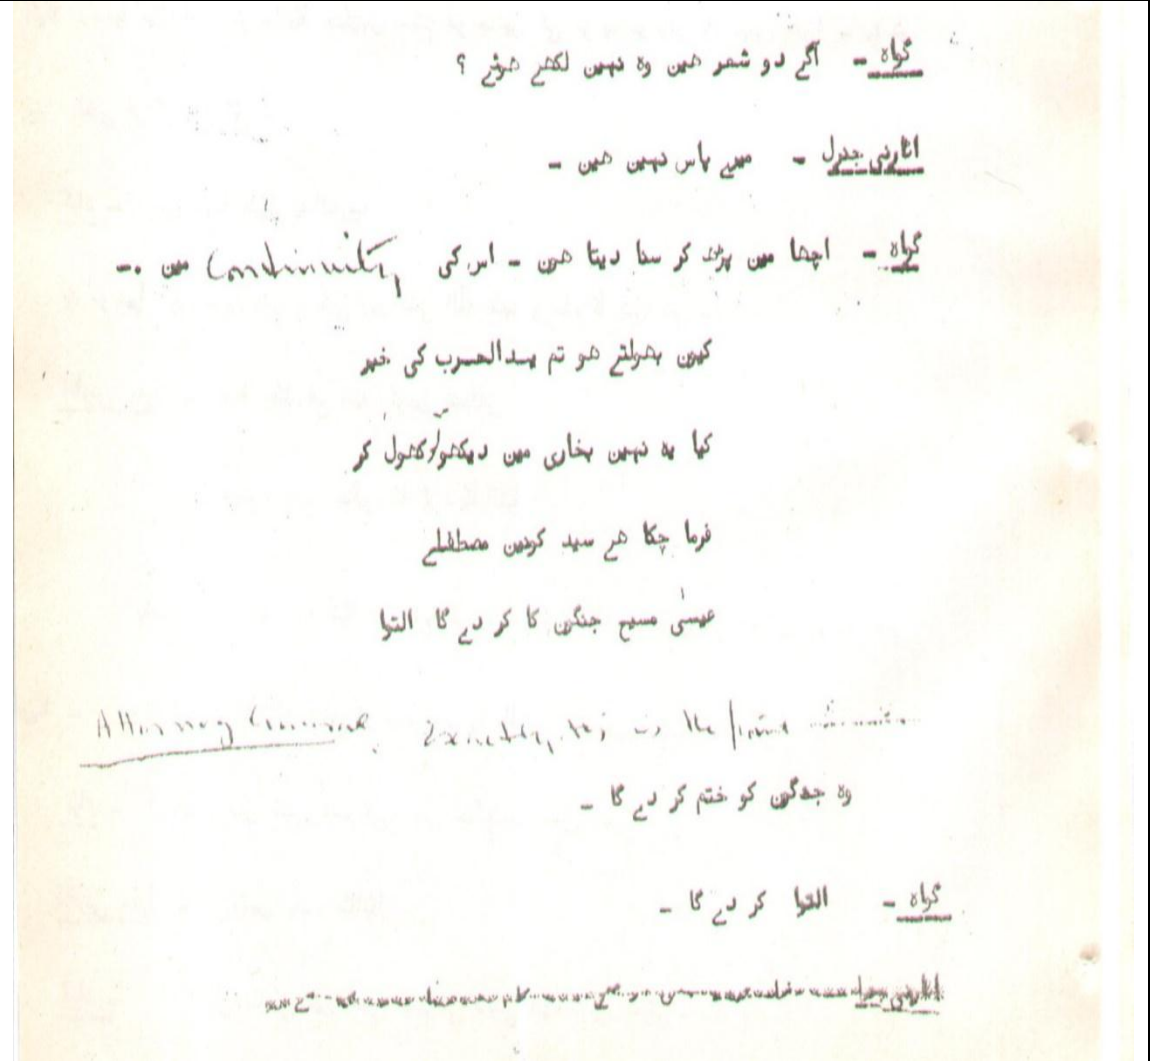 گواہ - آگے دو شعر ھیں وہ نہیں لکھے ھوئے ؟
اٹارنی جنرل - میرے پاس نہیں ھیں -
گواہ - اچھا میں پڑھ کر سنا دیتا ھوں - اس کی Continuity میں -
کیوں بھولتے ھو تم یضع الحرب کی خبر
کیا یہ نہیں بخاری میں دیکھو کھول کر
فرما چکا ھے سید کونین مصطفٰے
عیسٰی مسیح جنگوں کا کر دے گا التوا
Attorney General. Exactly, this is the point
وہ جنگوں کو ختم کر دے گا -
گواہ - التوا کر دے گا -
اٹارنی جنرل